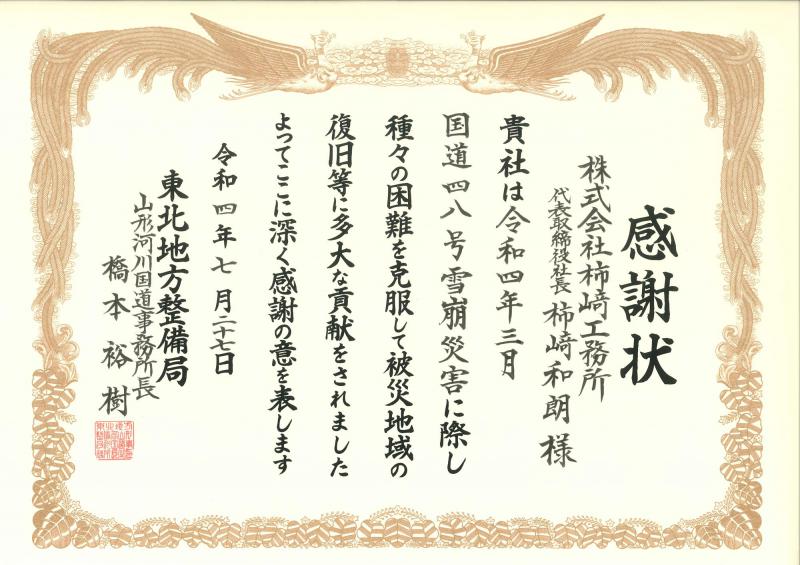 感謝状
株式会社柿﨑工務所
代表取締役社長 柿﨑和朗様
貴社は令和四年三月
国道四八号雪崩災害に際し
種々の困難を克服して被災地域の
復旧等に多大な貢献をされました
よってここに深く感謝の意を表します
令和四年七月二十七日
東北地方整備局
山形河川国道事務所長
橋本裕樹